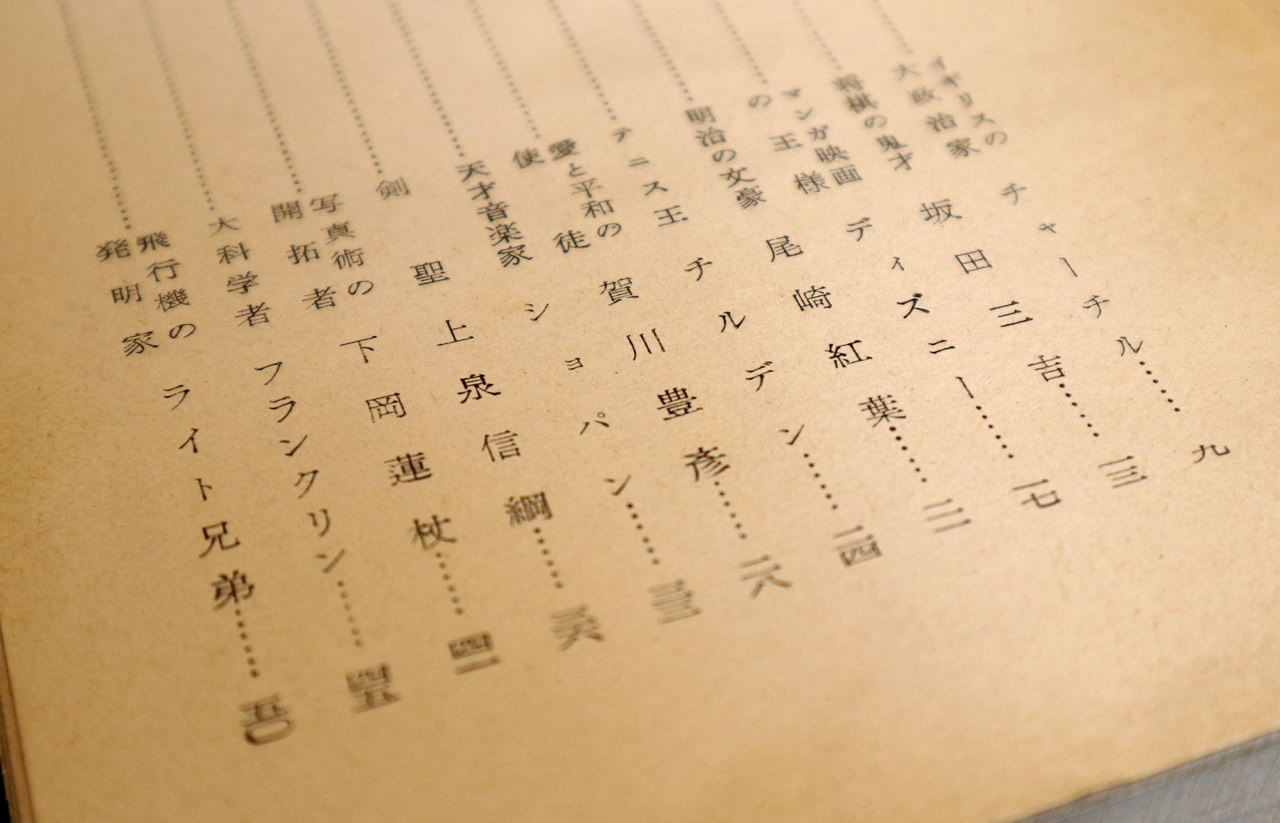 イギリスの
大政治家 チャーチル……九
将棋の鬼才 坂田三吉……一三
マンガ映画
の王様 ディズニー……一七
明治の文豪 尾崎紅葉……二一
テニス王 チルデン……二四
愛と平和の
使徒 賀川豊彦……二八
天才音楽家 ショパン……三三
剣聖 上泉信綱……三六
写真術の
開拓者 下岡蓮杖……四一
大科学者 フランクリン……四五
飛行機の
発明家 ライト兄弟……五〇